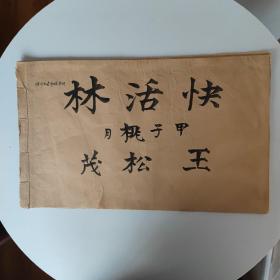 快活林
甲子桃月
王松茂